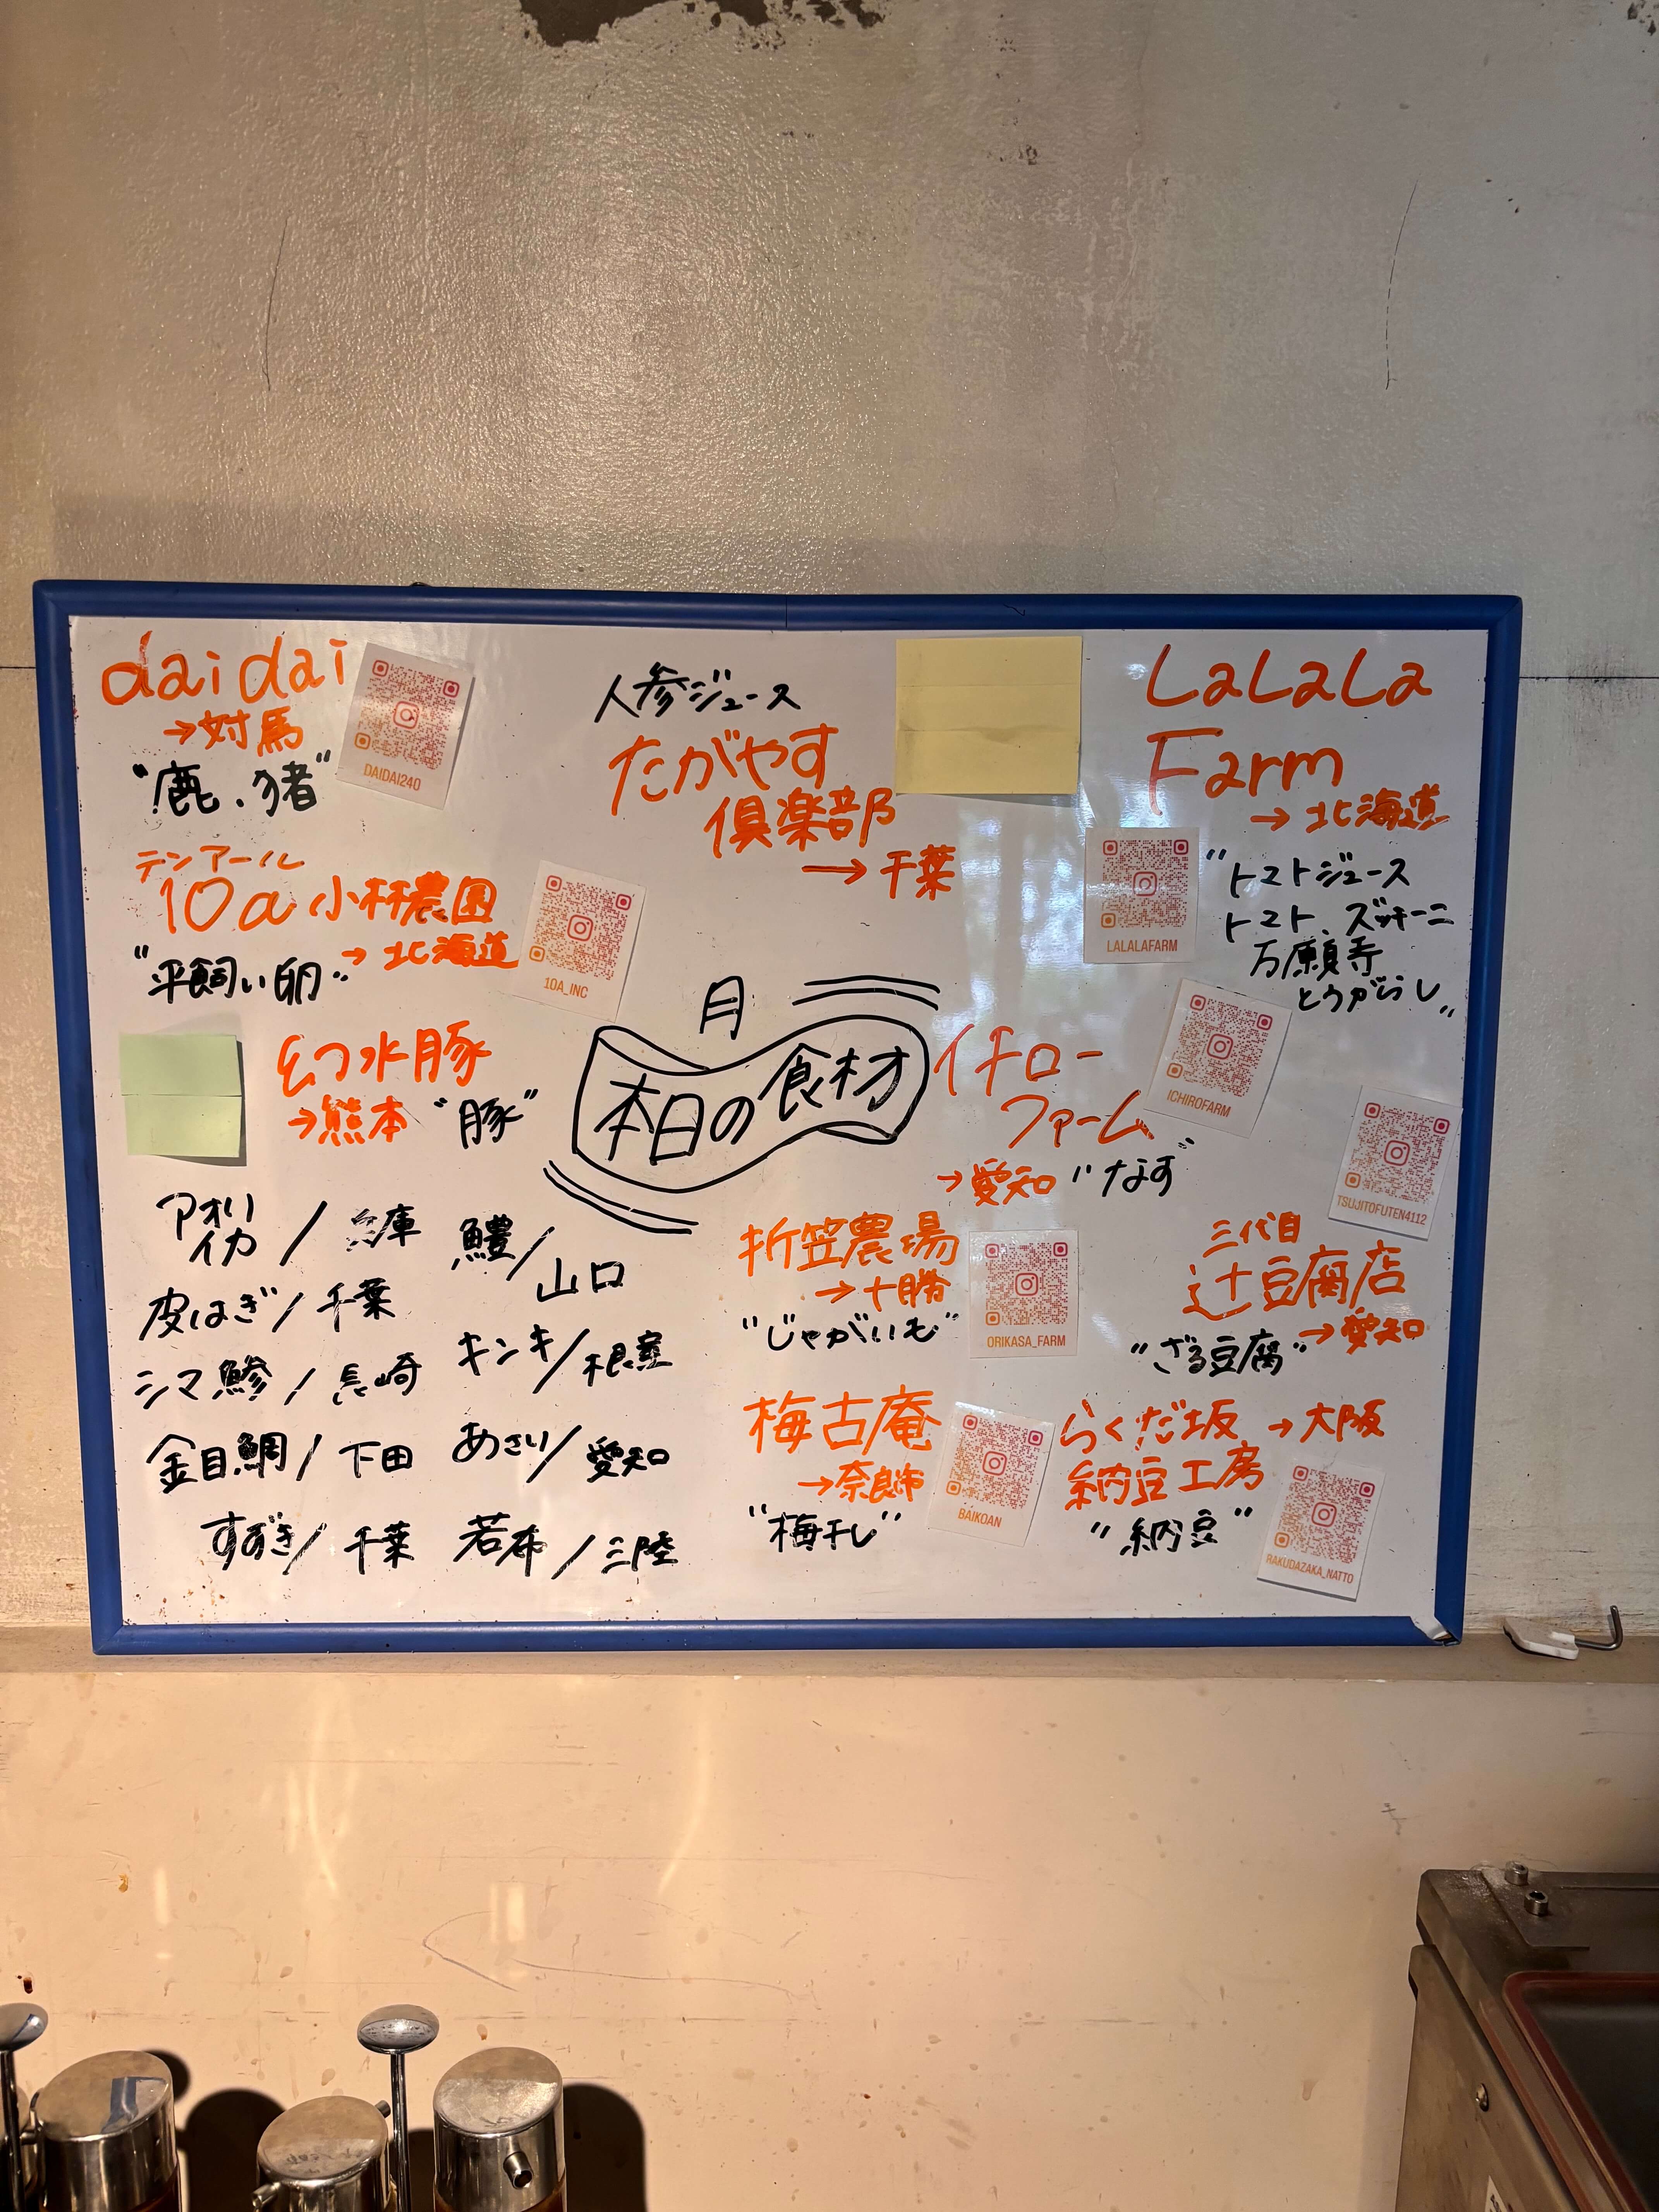 daidai
→対馬
"鹿、猪"
DAIDAI240
人参ジュース
たがやす
倶楽部
→千葉
LaLaLa
Farm
→北海道
LALALAFARM
"トマトジュース
トマト、ズッキーニ
万願寺
とうがらし"
テンアール
10a 小林農園
→北海道
"平飼い卵"
10A_INC
水豚
→熊本 "豚"
月
本日の食材
イチロー
ファーム
→愛知 "なす"
ICHIROFARM
TSUJITOFUTEN4112
アオリ
イカ / 兵庫
皮はぎ / 千葉
シマ鯵 / 長崎
金目鯛 / 下田
すずき / 千葉
鱧 / 山口
キンキ / 根室
あさり / 愛知
若布 / 三陸
折笠農場
→十勝
"じゃがいも"
ORIKASA_FARM
三代目
辻豆腐店
→愛知
"ざる豆腐"
梅古庵
→奈良市
"梅干し"
BAIKOAN
らくだ坂 →大阪
納豆工房
"納豆"
RAKUDAZAKA_NATTO